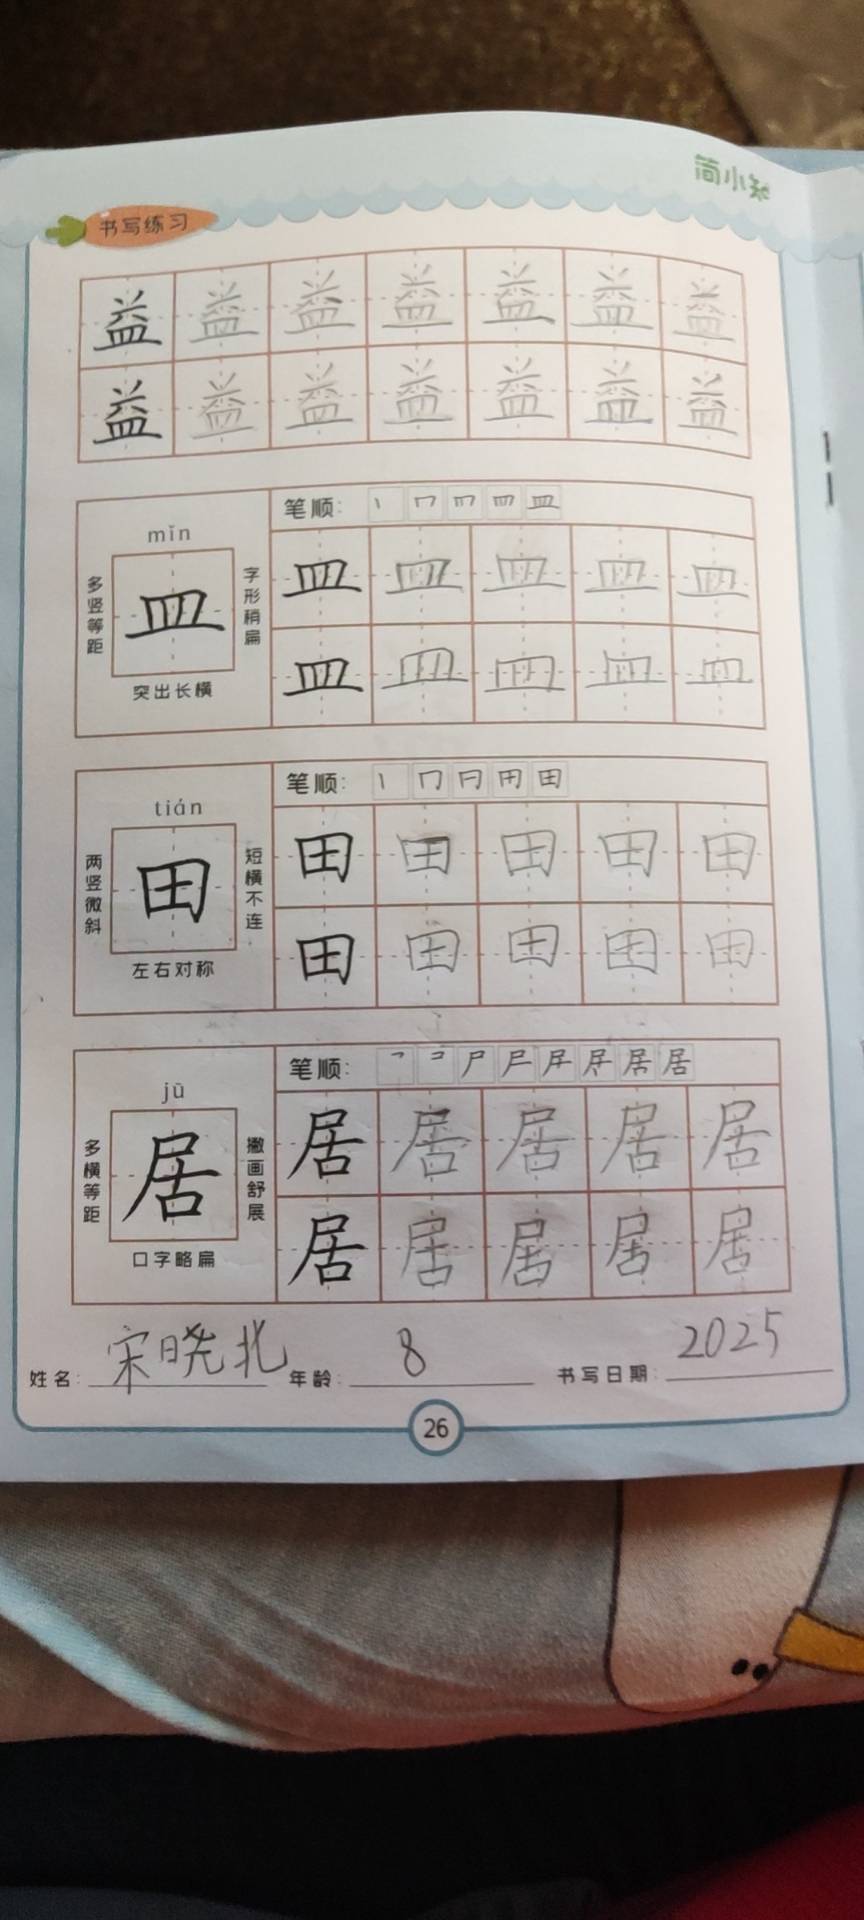 简小知
书写练习
益 益 益 益 益 益 益
益 益 益 益 益 益 益
mǐn
多竖等距
皿
字形稍扁
突出长横
笔顺:
皿 皿 皿 皿 皿
皿 皿 皿 皿 皿
tián
两竖微斜
田
短横不连
左右对称
笔顺:
田 田 田 田 田
田 田 田 田 田
jū
多横等距
居
撇画舒展
口字略扁
笔顺:
居 居 居 居 居
居 居 居 居 居
姓名: 宋晓北 年龄: 8 书写日期: 2025
26